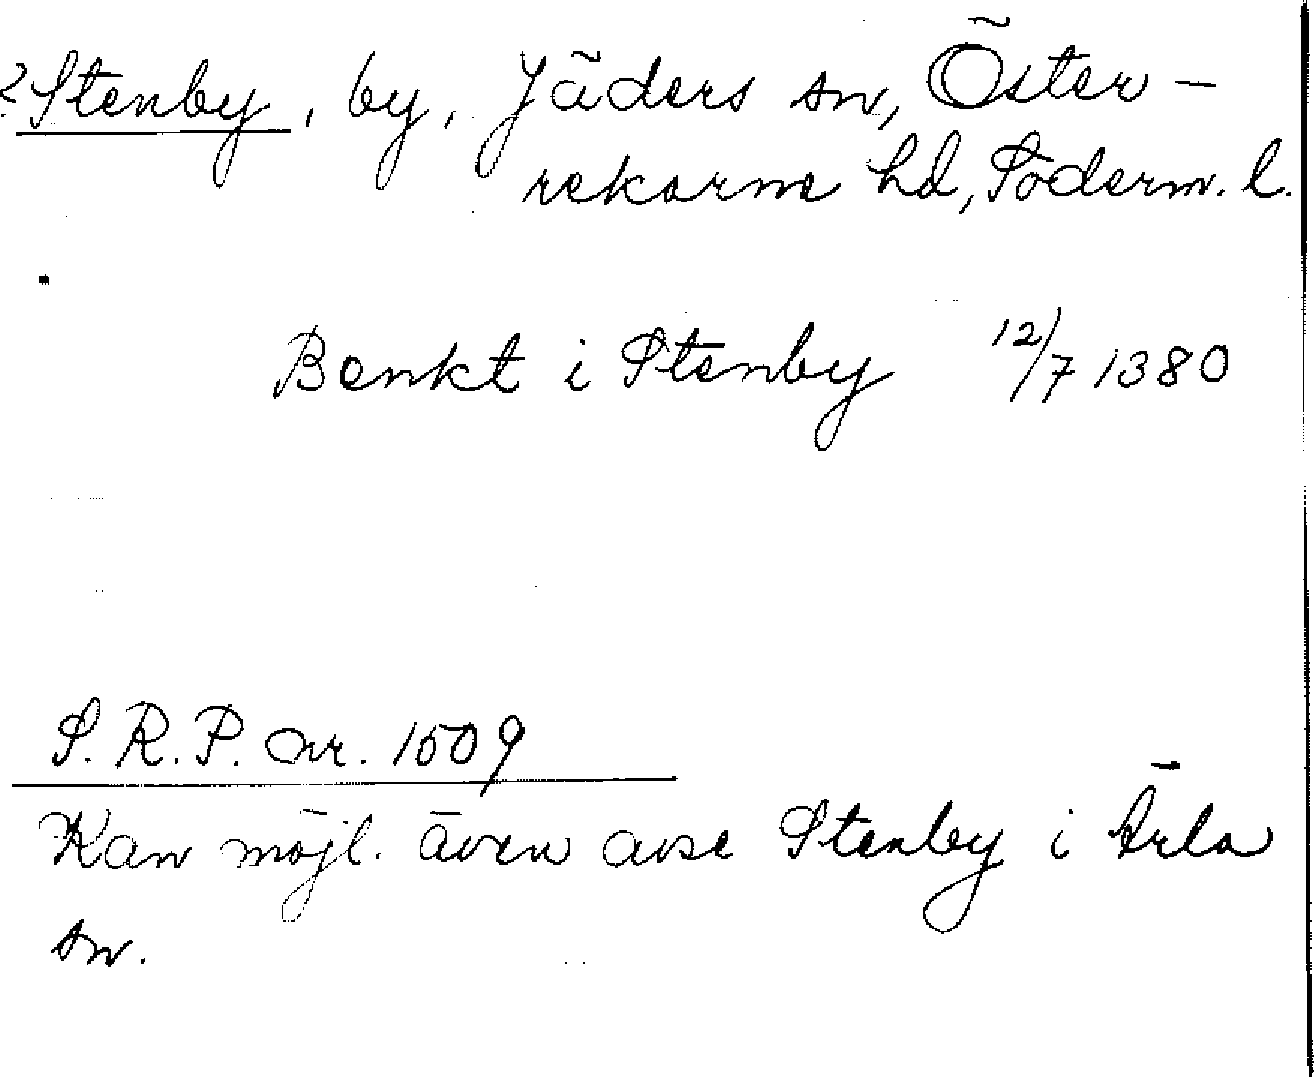 ? Stenby, by, Jäders sn, Öster-
rekarne hd, Söderm. l.
Benkt i Stenby 12/7 1380
S.R.P. nr. 1509
Kan möjl. även avse Stenby i Ärla
sn.